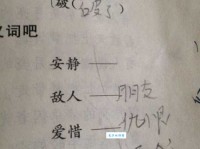 破(
义词吧
安静——
敌人——朋友
爱惜——仇恨